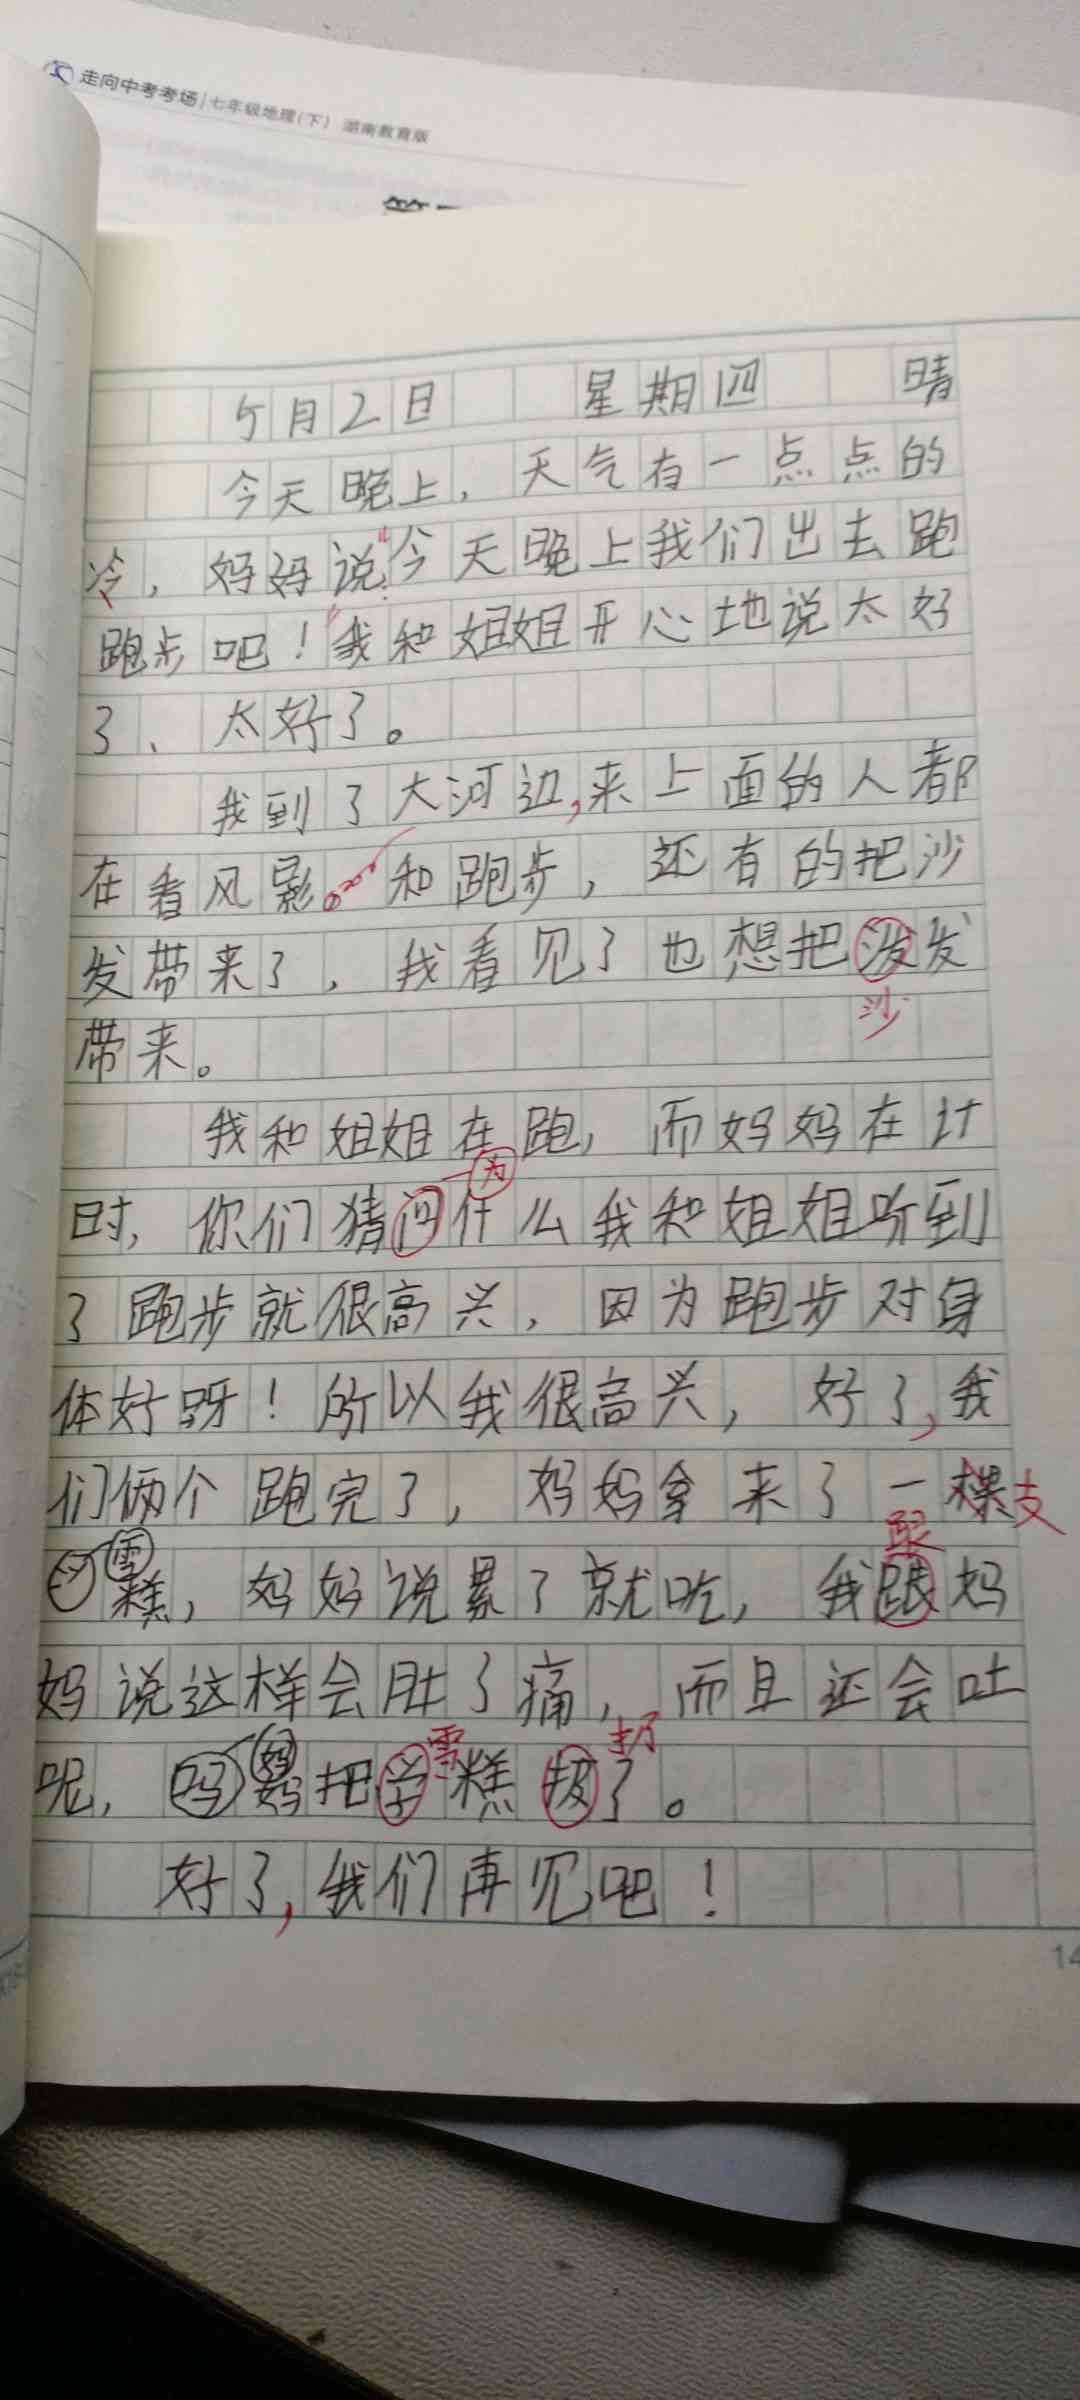 走向中考考场|七年级地理(下) 湖南教育版
5月2日 星期四 晴
今天晚上，天气有一点点的
冷，妈妈说:“今天晚上我们出去跑
跑步吧！”我和姐姐开心地说太好
了、太好了。
我到了大河边,来上面的人都
在看风影 和跑步，还有的把沙
发带来了，我看见了也想把发发
沙
带来。
我和姐姐在跑，而妈妈在计
为
时，你们猜问什么我和姐姐听到
了跑步就很高兴，因为跑步对身
体好呀！所以我很高兴，好了,我
们俩个跑完了，妈妈拿来了一棵支
雪 跟
糕，妈妈说累了就吃，我跟妈
妈说这样会肚了痛，而且还会吐
妈 雪 扔
呢，吗妈把学糕 了。
好了,我们再见吧！
14